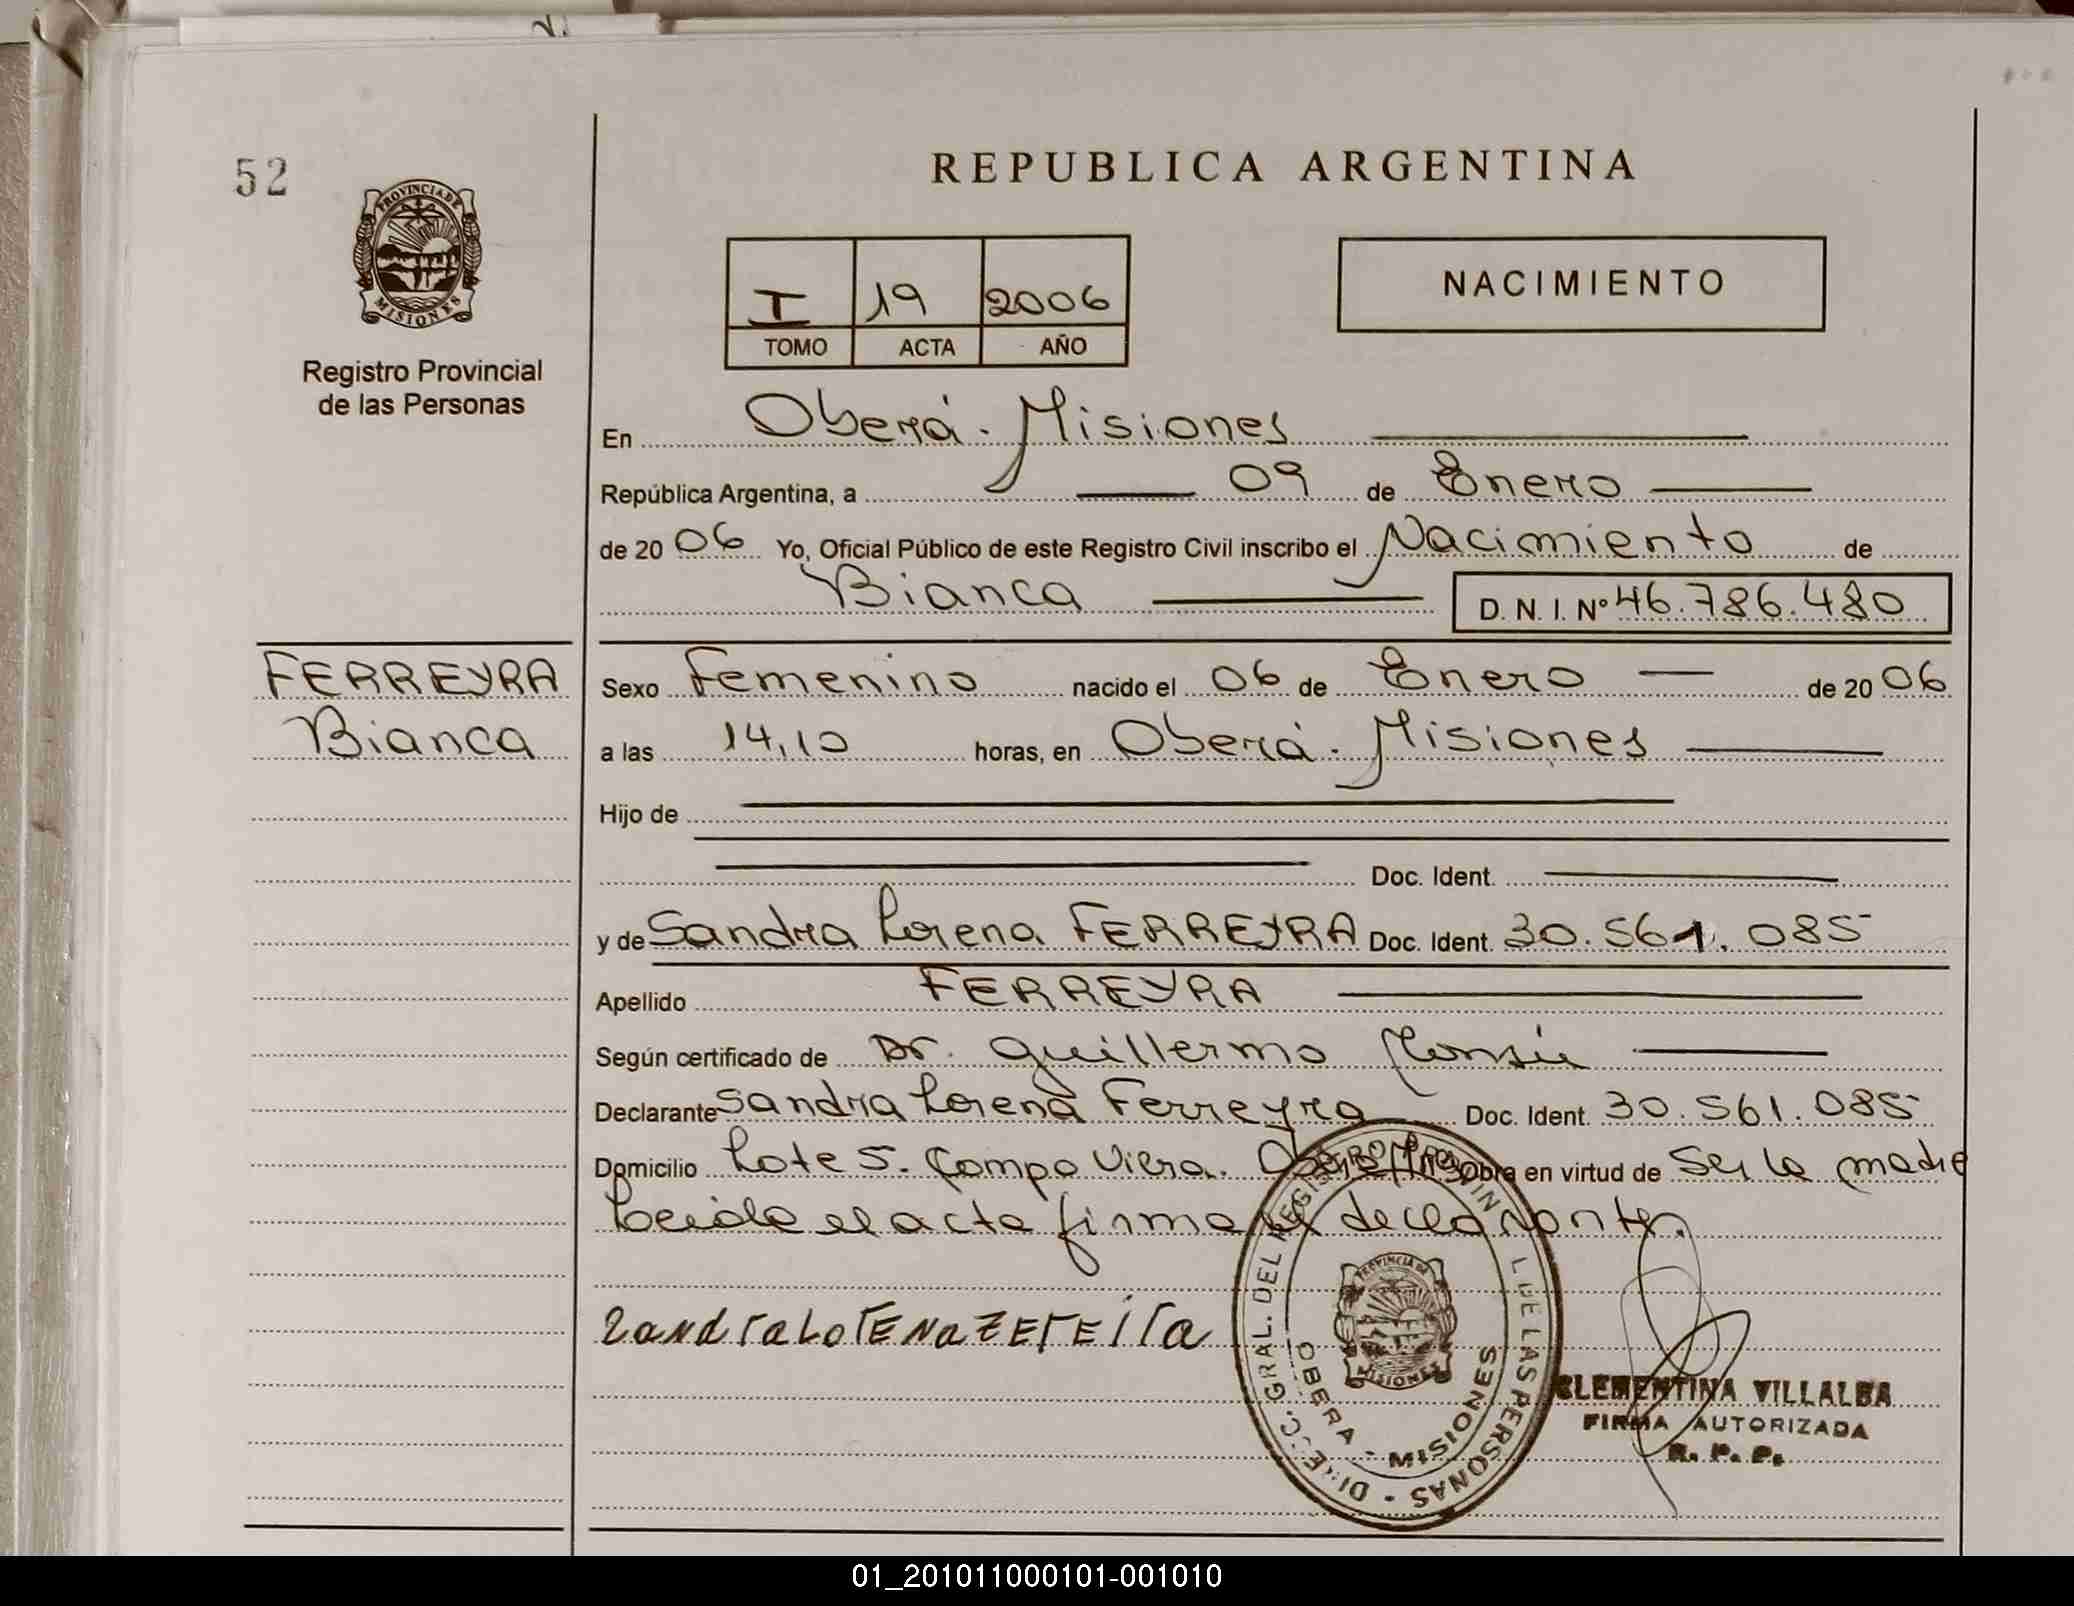 52
REPUBLICA ARGENTINA
PROVINCIA DE
MISIONES
I 19 2006
TOMO ACTA AÑO
NACIMIENTO
Registro Provincial
de las Personas
En Oberá - Misiones
República Argentina, a 09 de Enero
de 2006 Yo, Oficial Público de este Registro Civil inscribo el Nacimiento de
Bianca D. N. I. N° 46.786.480
FERREYRA
Bianca
Sexo Femenino nacido el 06 de Enero de 2006
a las 14,10 horas, en Oberá - Misiones
Hijo de
Doc. Ident.
y de Sandra Lorena FERREYRA Doc. Ident. 30.561.085
Apellido FERREYRA
Según certificado de Dr. Guillermo
Declarante Sandra Lorena Ferreyra Doc. Ident. 30.561.085
Domicilio Lote 5. Campo Viera. Obra en virtud de Ser la madre
Leida el acta firma la declarante.
DIRECC. GRAL. DEL REGISTRO PROVINCIAL DE LAS PERSONAS
OBERA - MISIONES
PROVINCIA DE
MISIONES
CLEMENTINA VILLALBA
FIRMA AUTORIZADA
R. P. P.
01_201011000101-001010